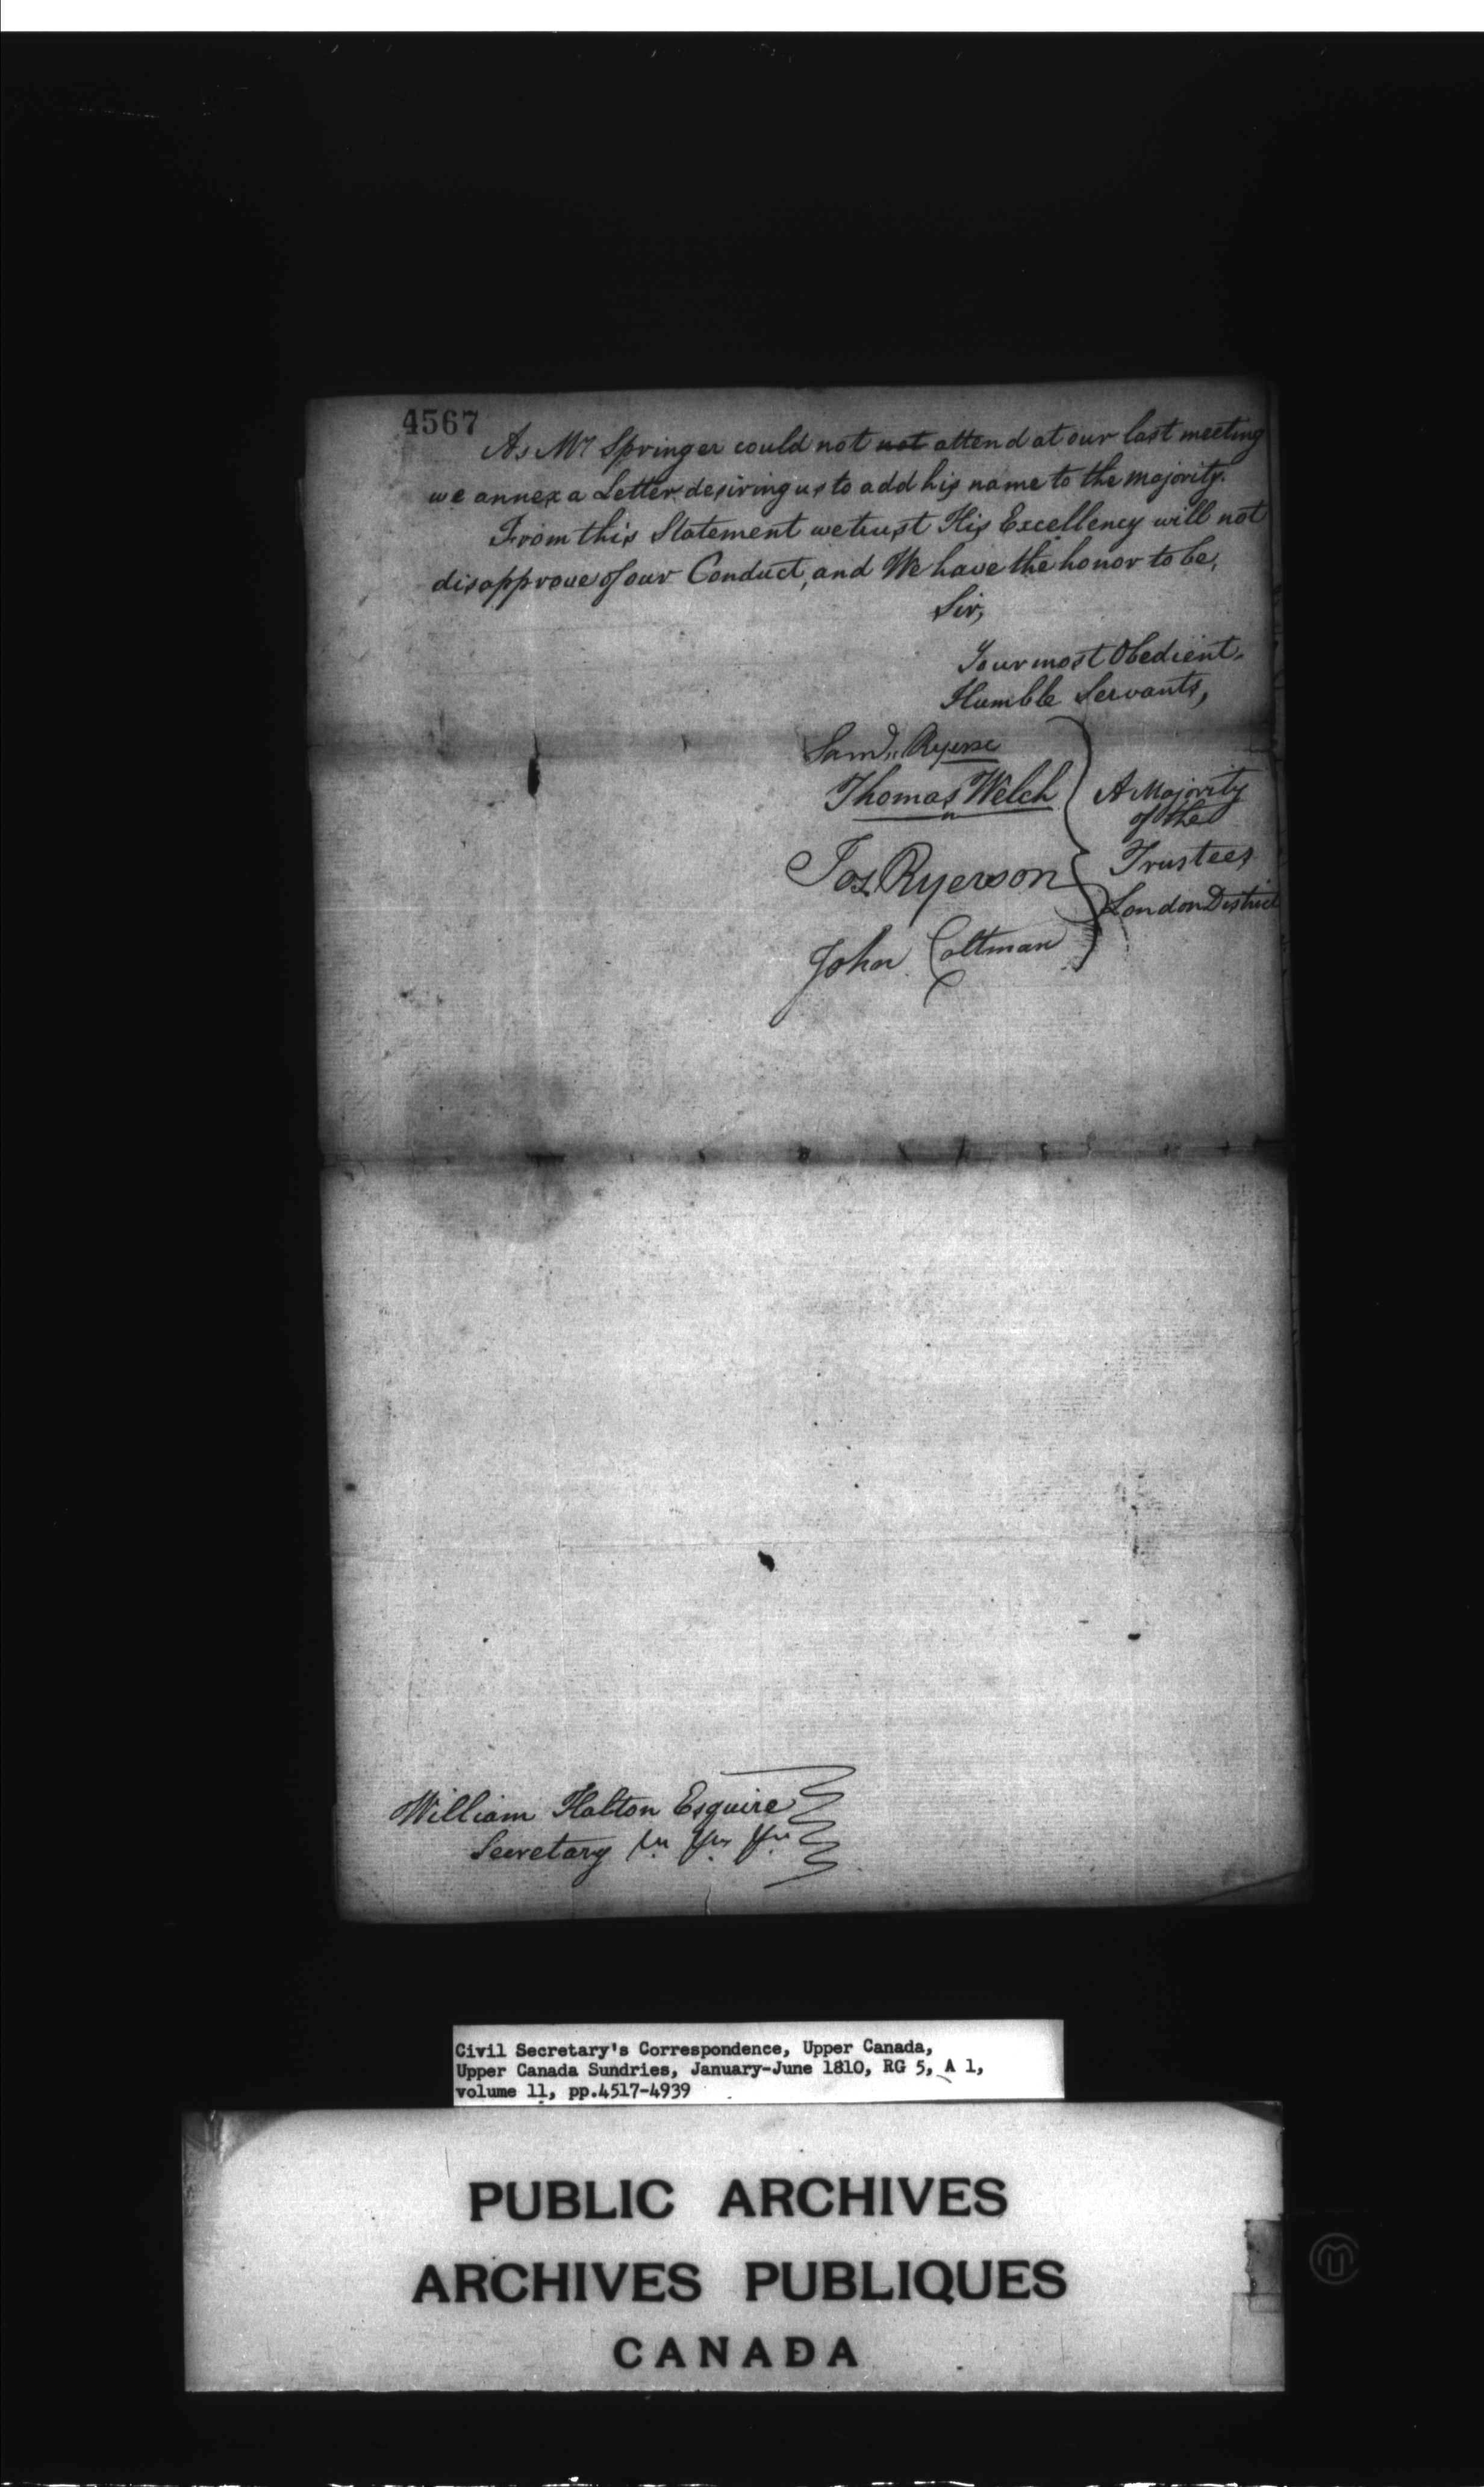 4567
As Mr Springer could not not attend at our last meeting
we annex a Letter desiring us to add his name to the majority.
From this Statement we trust His Excellency will not
disapprove of our Conduct, and We have the honor to be,
Sir,
Your most Obedient
Humble Servants,
Saml. Ryerse
Thomas Welch
Jos. Ryerson
John Coltman
A Majority
of the
Trustees
London District
William Halton Esquire
Secretary
Civil Secretary's Correspondence, Upper Canada,
Upper Canada Sundries, January-June 1810, RG 5, A 1,
volume 11, pp.4517-4939
PUBLIC ARCHIVES
ARCHIVES PUBLIQUES
CANADA